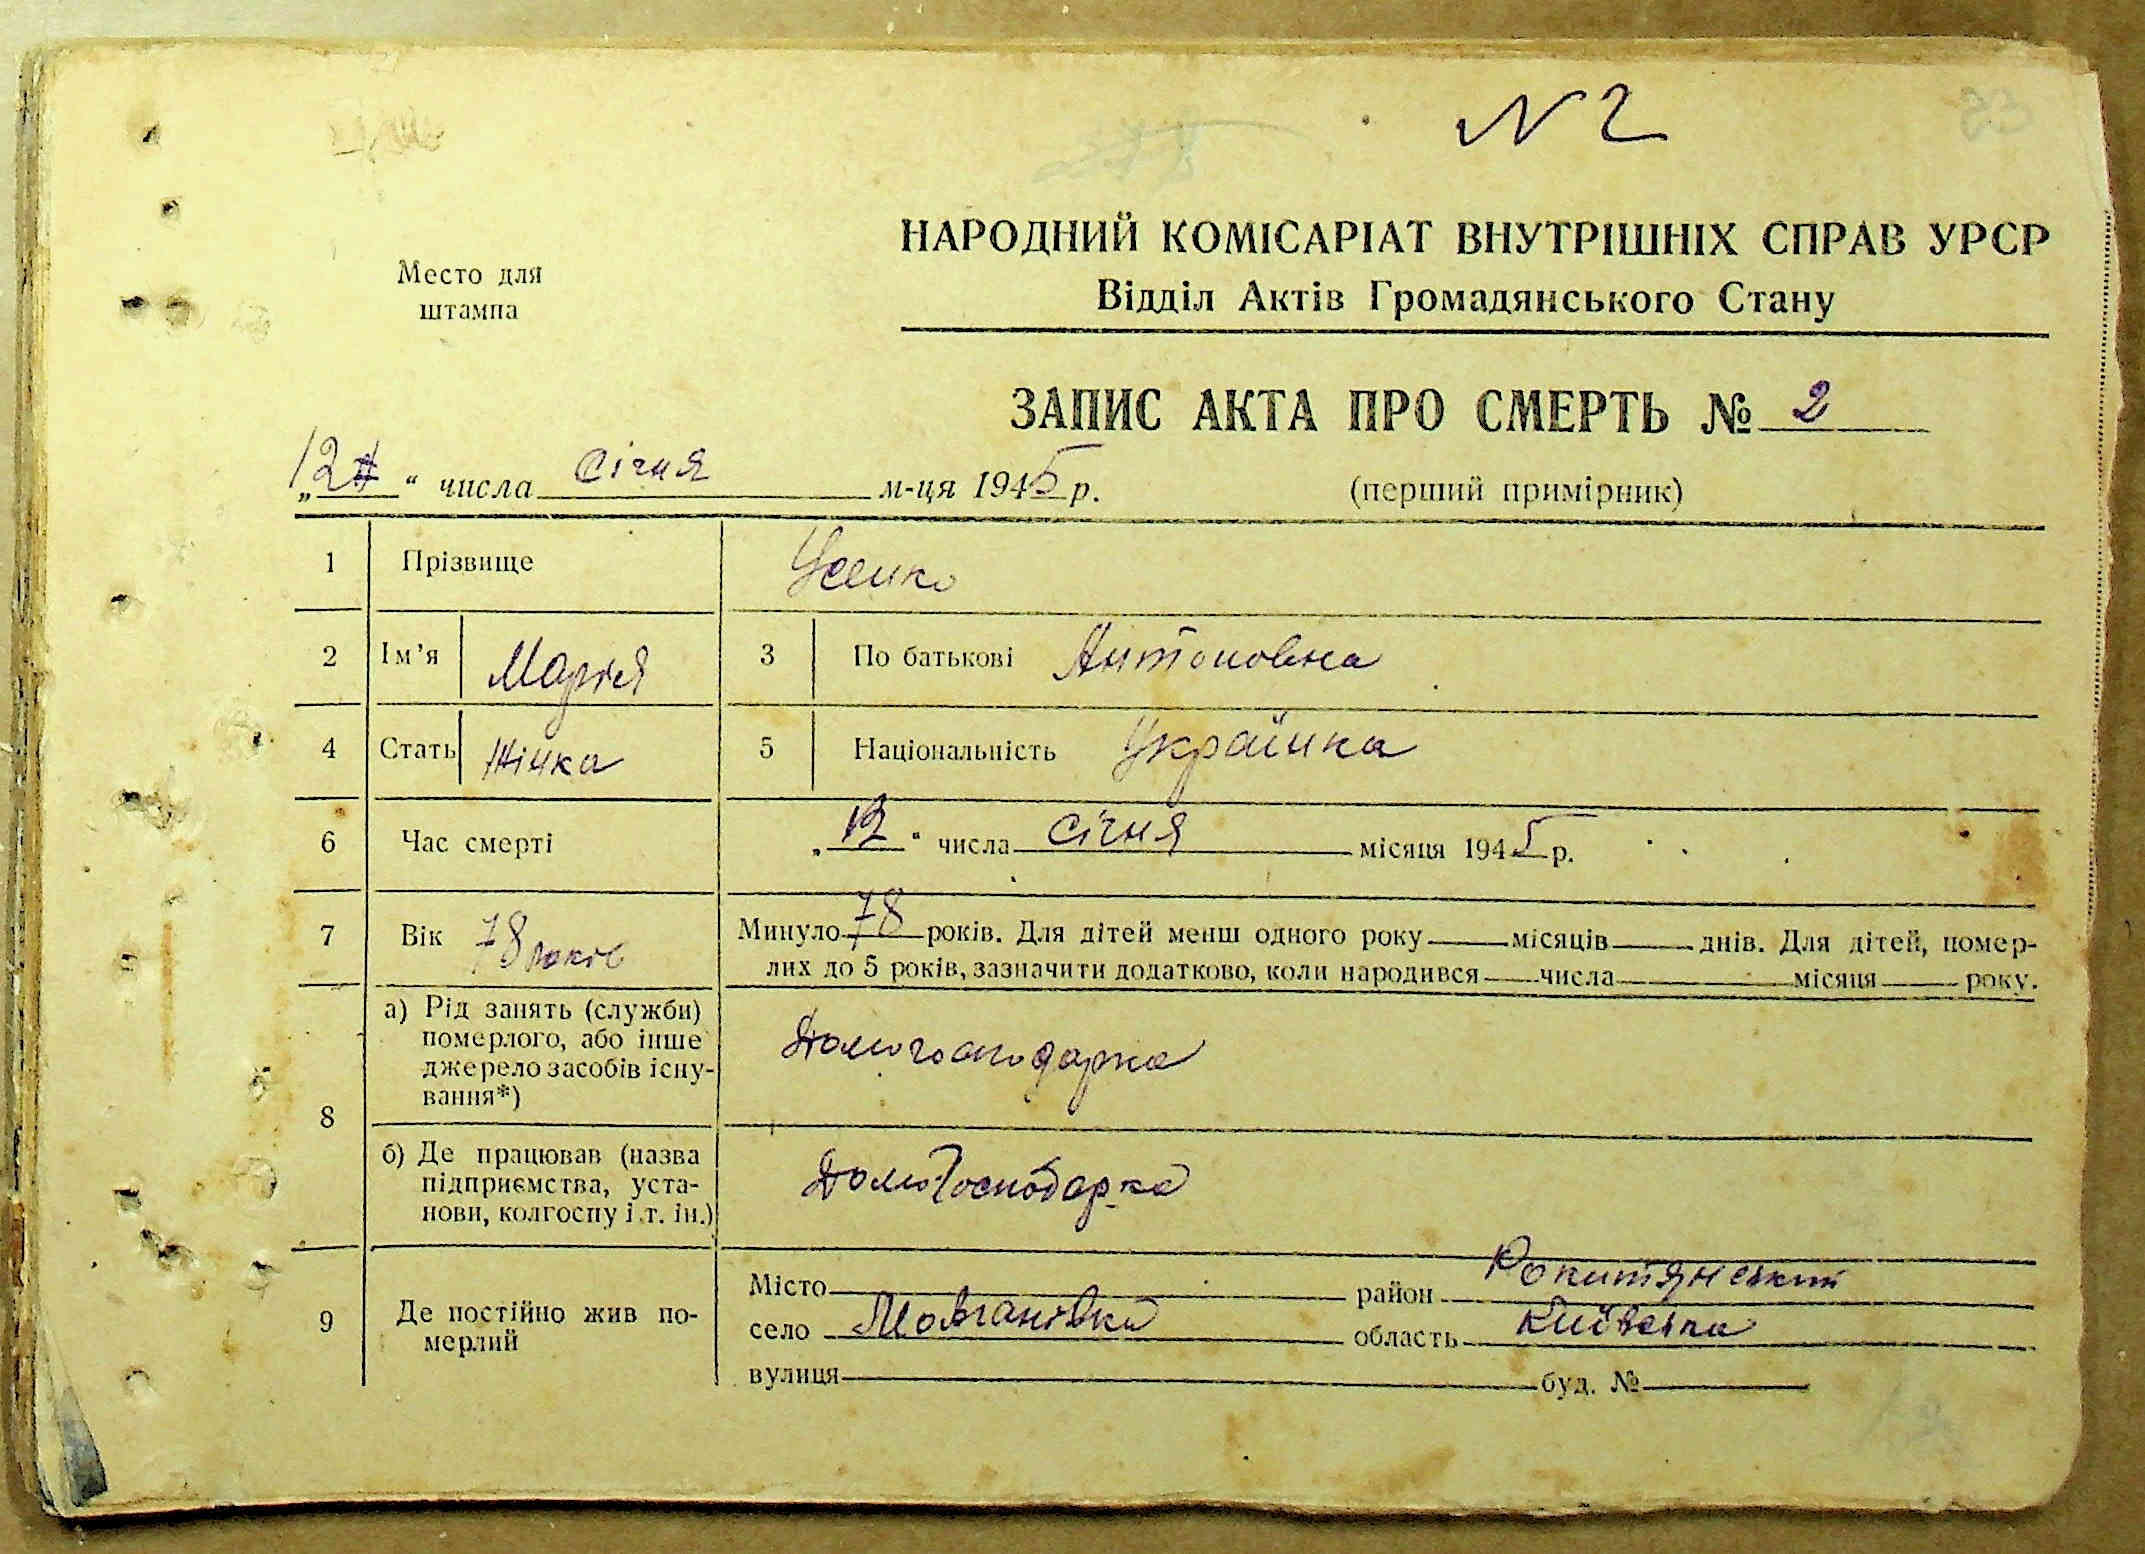 № 2
НАРОДНИЙ КОМІСАРІАТ ВНУТРІШНІХ СПРАВ УРСР
Место для
штампа
Відділ Актів Громадянського Стану
ЗАПИС АКТА ПРО СМЕРТЬ № 2
„12“ числа січня м-ця 1945 р. (перший примірник)
1 Прізвище Усенко
2 Ім’я Марія 3 По батькові Антоновна
4 Стать Жінка 5 Національність Українка
6 Час смерті „12“ числа січня місяця 1945 р.
7 Вік 78 років Минуло 78 років. Для дітей менш одного року місяців днів. Для дітей, помер-
лих до 5 років, зазначити додатково, коли народився числа місяця року.
8 а) Рід занять (служби)
померлого, або інше
джерело засобів існу-
вання*) Домогосподарка
б) Де працював (назва
підприємства, уста-
нови, колгоспу і т. ін.) Домогосподарка
9 Де постійно жив по-
мерлий
Місто район Рокитянський
село Мовчанівка область Київська
вулиця буд. №